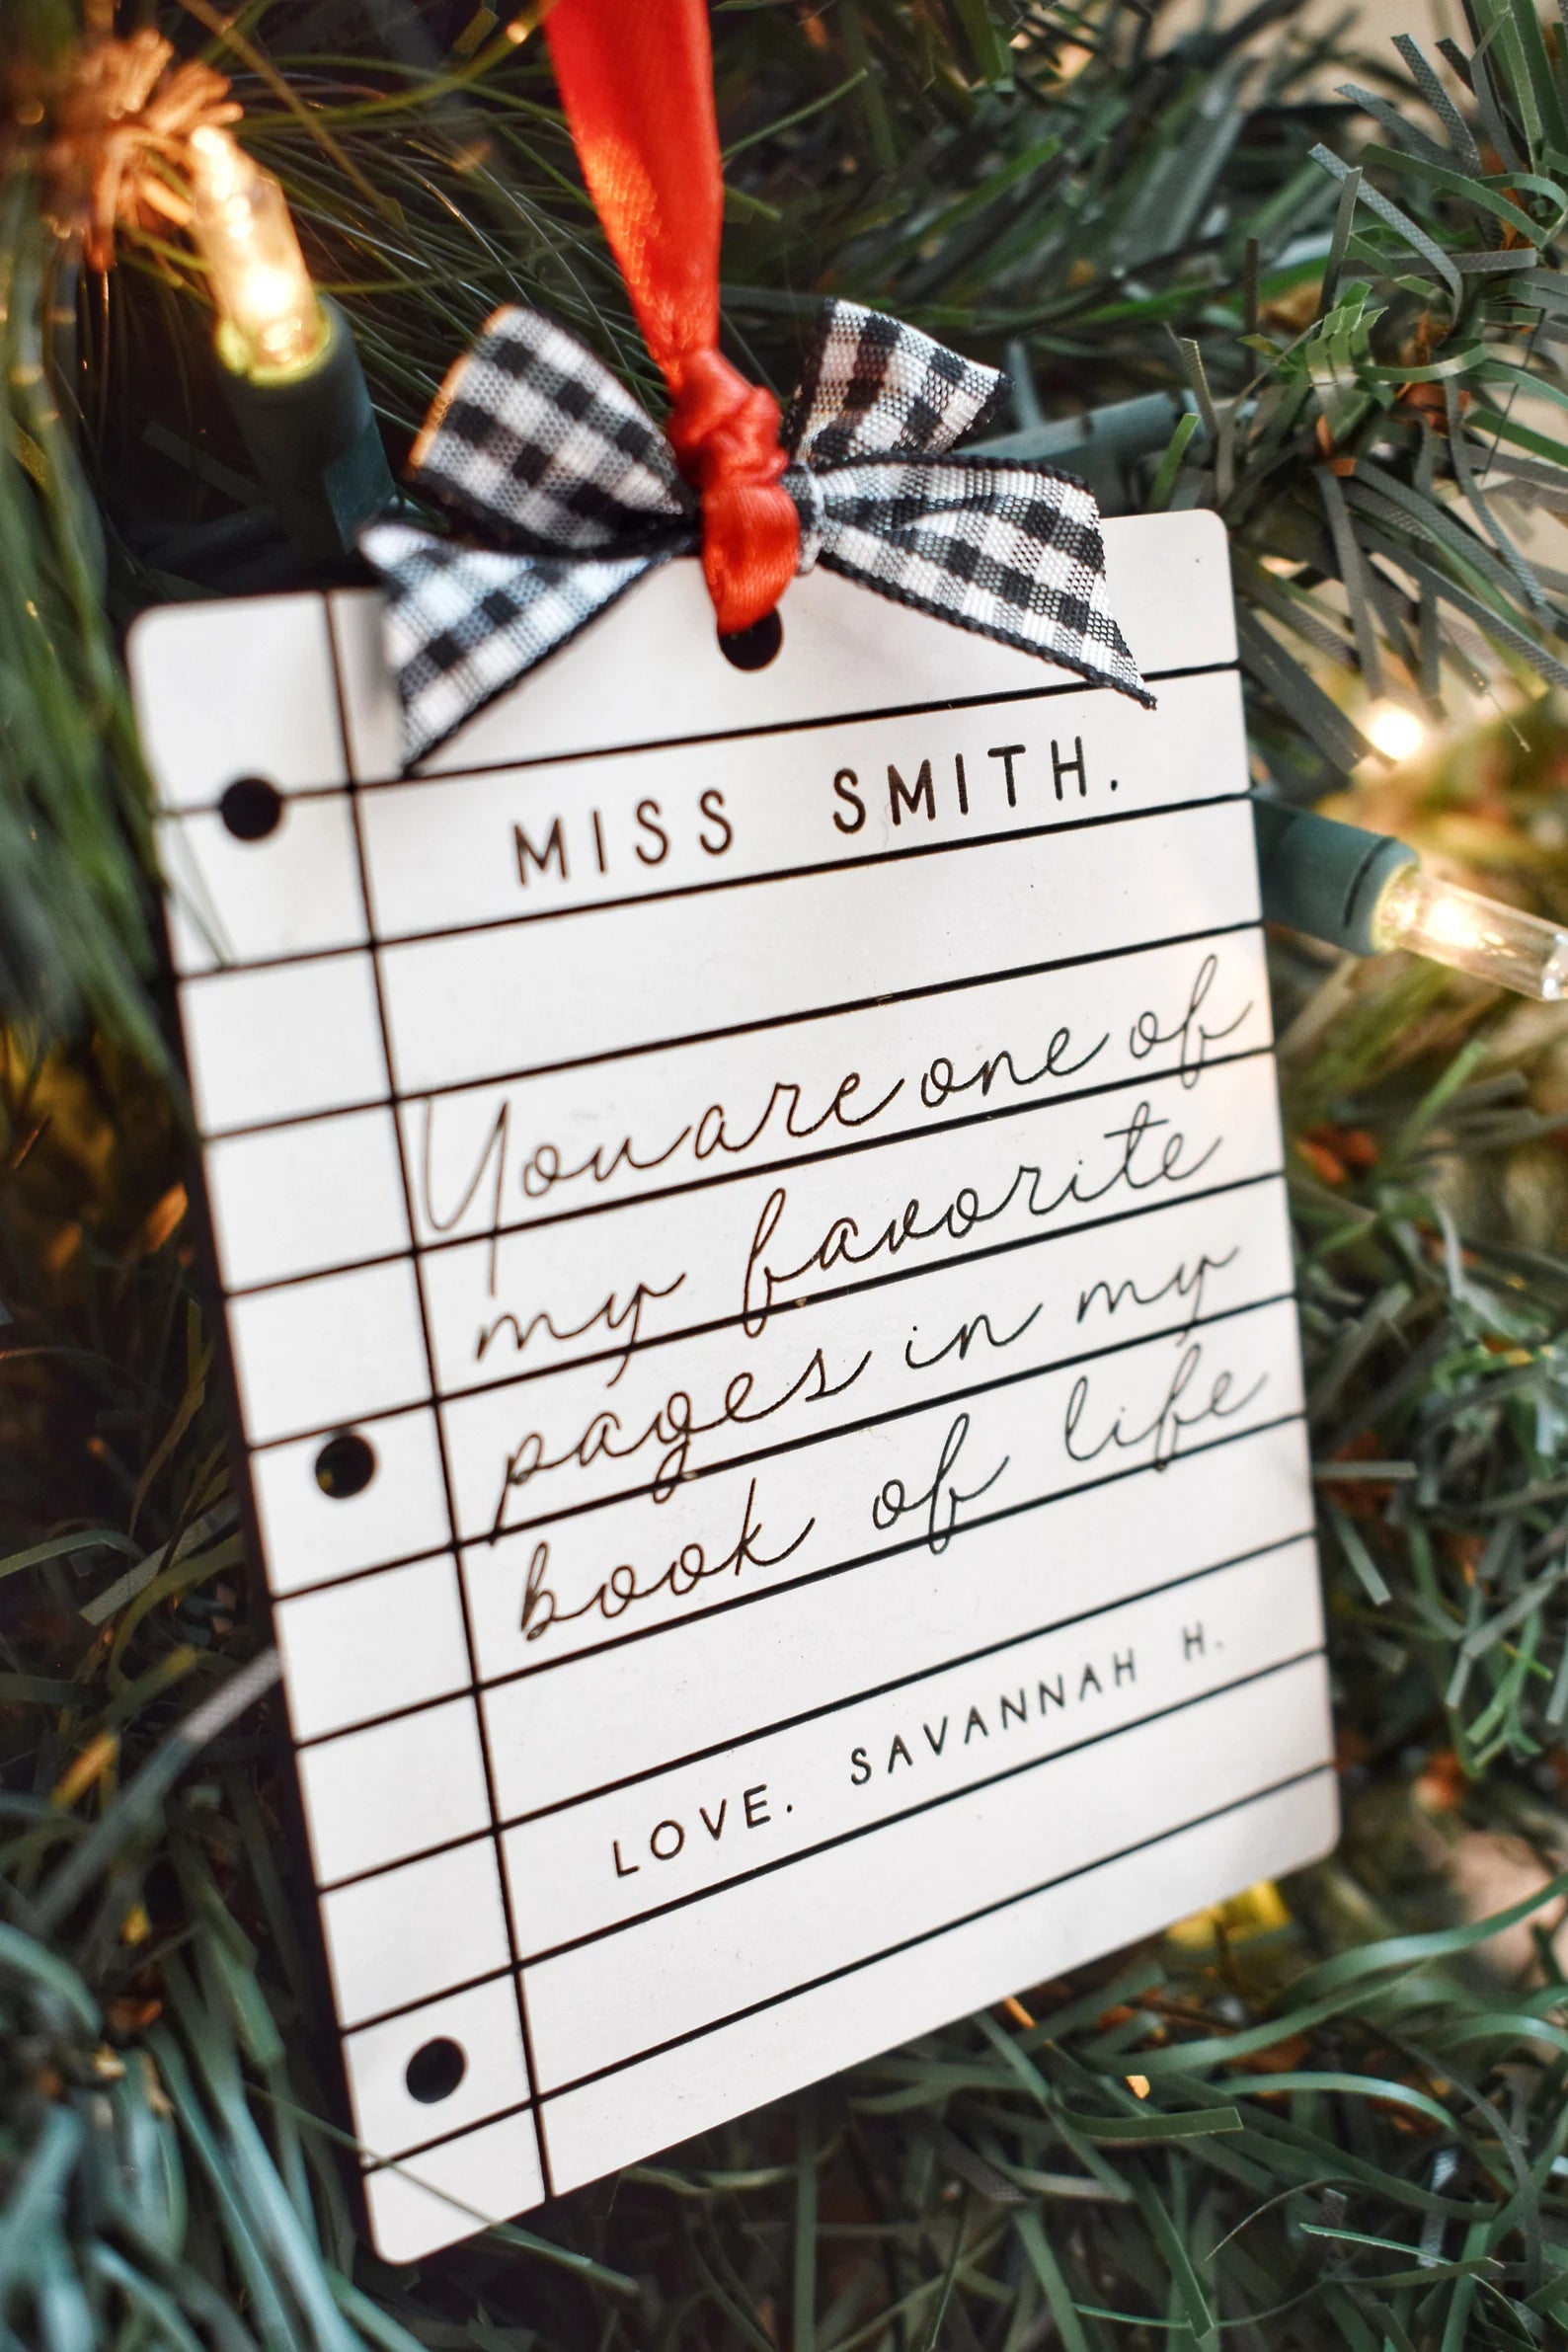 MISS SMITH.
You are one of
my favorite
pages in my
book of life
LOVE. SAVANNAH H.